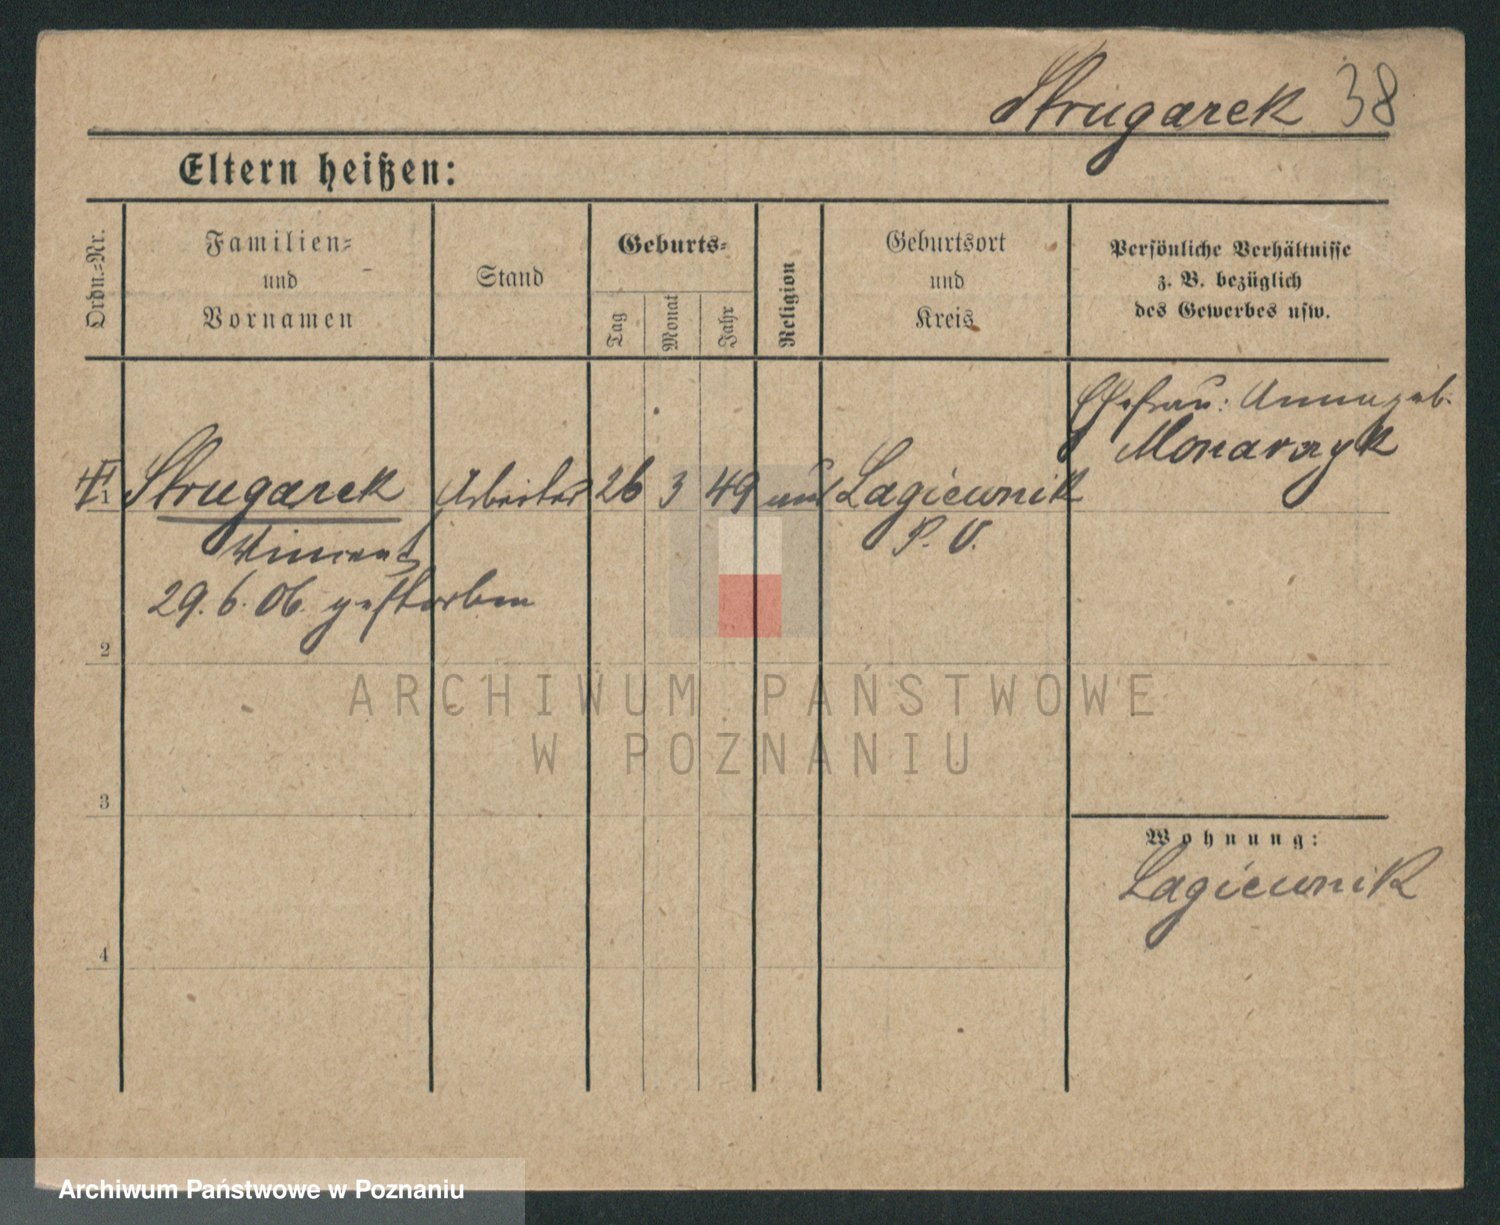 Strugarek 38
Eltern heißen:
Ordn.-Nr.
Familien-
und
Vornamen
Stand
Geburts-
Tag
Monat
Jahr
Religion
Geburtsort
und
Kreis
Persönliche Verhältnisse
z. B. bezüglich
des Gewerbes usw.
Ehefrau: Anna geb.
Monarzyk
1 Strugarek Arbeiter 26 3 49 Lagiewnik
Vincent P. O.
29. 6. 06. gestorben
2
ARCHIWUM PAŃSTWOWE
W POZNANIU
3
Wohnung:
Lagiewnik
4
Archiwum Państwowe w Poznaniu